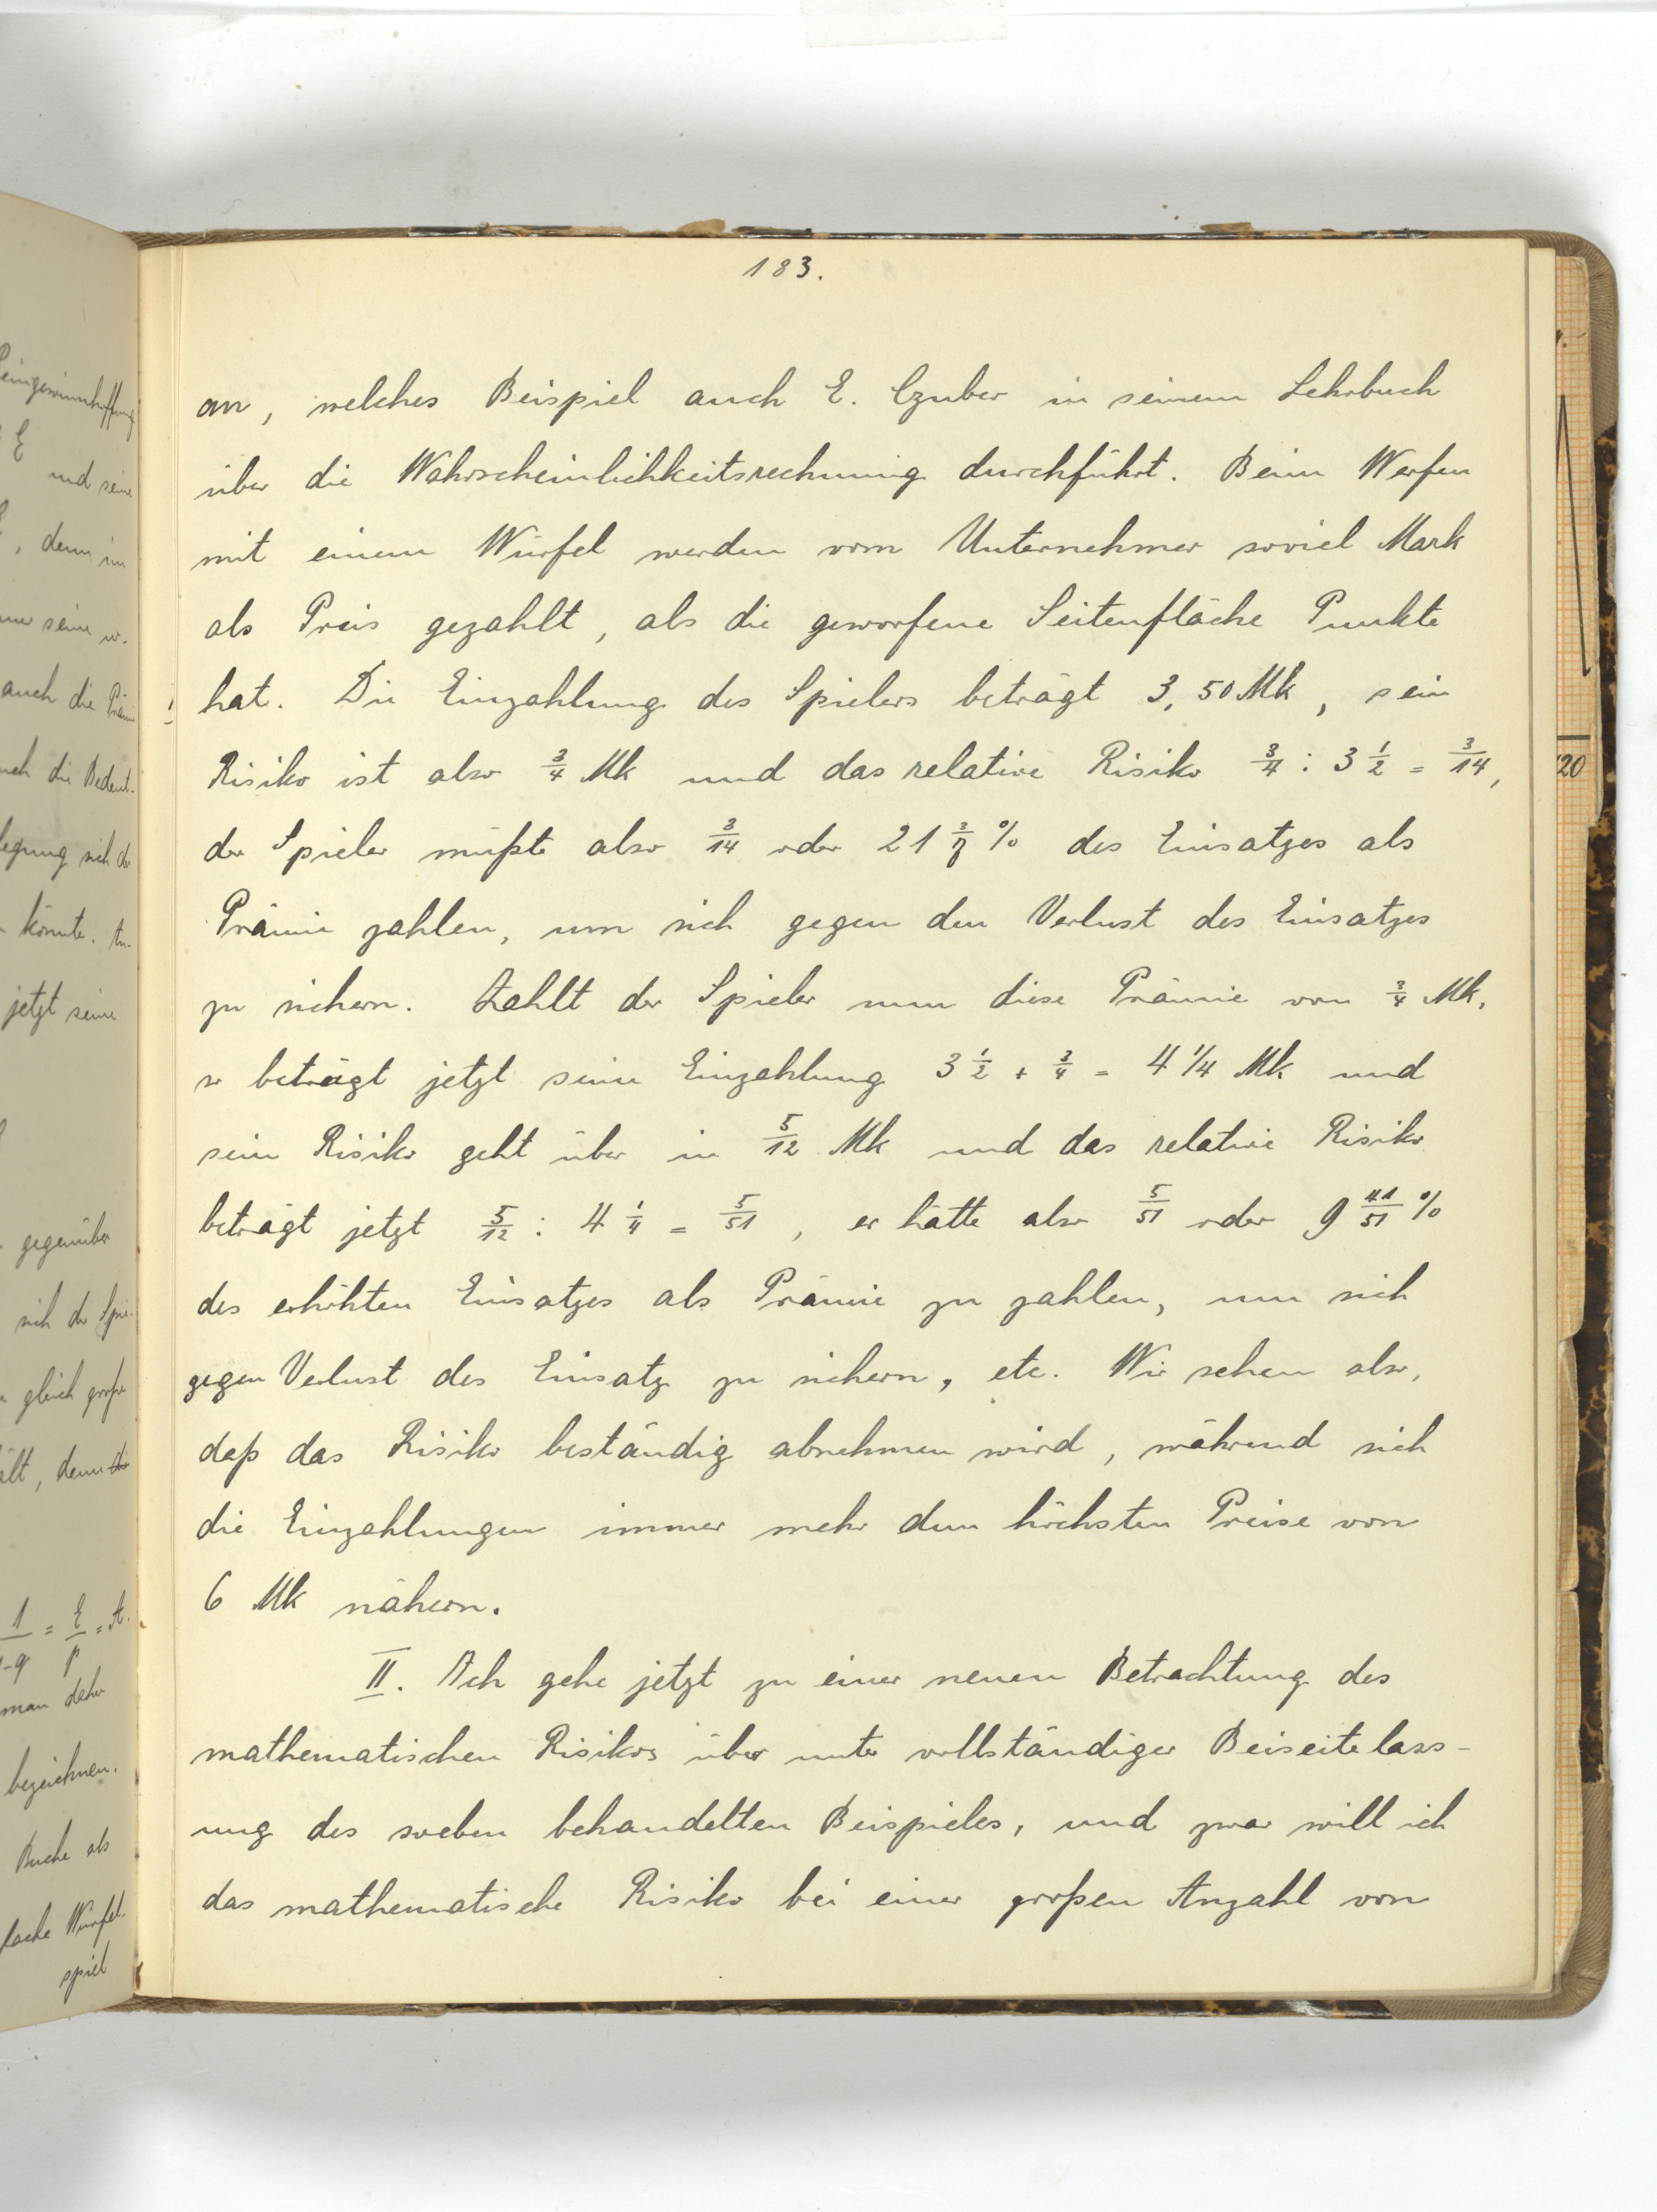 183.
an, welches Beispiel auch E. Czuber in seinem Lehrbuch
über die Wahrscheinlichkeitsrechnung durchführt. Beim Werfen
mit einem Würfel werden vom Unternehmer soviel Mark
als Preis gezahlt, als die geworfene Seitenfläche Punkte
hat. Die Einzahlung des Spielers beträgt 3,50 Mk, sein
Risiko ist also 3/4 Mk und das relative Risiko 3/4 : 3 1/2 = 3/14,
der Spieler müßte also 3/14 oder 21 3/7 % des Einsatzes als
Prämie zahlen, um sich gegen den Verlust des Einsatzes
zu sichern. Zahlt der Spieler nun diese Prämie von 3/4 Mk,
so beträgt jetzt seine Einzahlung 3 1/2 + 3/4 = 4 1/4 Mk und
sein Risiko geht über in 5/12 Mk und das relative Risiko
beträgt jetzt 5/12 : 4 1/4 = 5/51, er hätte also 5/51 oder 9 41/51 %
des erhöhten Einsatzes als Prämie zu zahlen, um sich
gegen Verlust des Einsatz zu sichern, etc. Wir sehen also,
daß das Risiko beständig abnehmen wird, während sich
die Einzahlungen immer mehr dem höchsten Preise von
6 Mk nähern.
II. Ich gehe jetzt zu einer neuen Betrachtung des
mathematischen Risikos über unter vollständiger Beiseitelass-
ung des soeben behandelten Beispieles, und zwar will ich
das mathematische Risiko bei einer großen Anzahl von
E
und seine
, denn im
auch die
könnte.
jetzt seine
gegenüber
sich der
gleich große
denn die
1/1-q = E/p = A.
man daher
bezeichnen.
Buche als
Würfel-
spiel
20